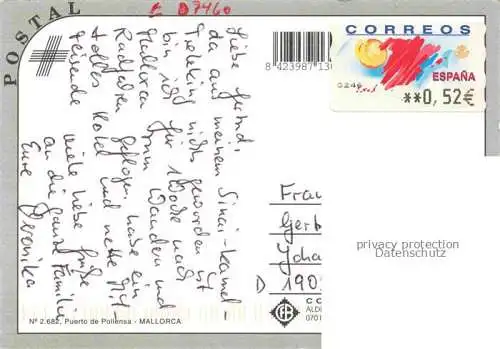 POSTAL
E 07460
CORREOS
ESPAÑA
0246
**0,52€
8 423987 130
Liebe Gerti,
da aus meinem Sinai-Kamel-
Trekking nichts geworden ist
bin ich für 1 Woche nach
Mallorca zum Wandern und
Radfahren geflogen, habe ein
tolles Hotel und nette Mit-
reisende
viele liebe Grüße
an die ganze Familie
Eure Veronika
Frau
Gerti
Joha
D 190
privacy protection
Datenschutz
Nº 2.682, Puerto de Pollensa - MALLORCA.
CO
ALDI
0701